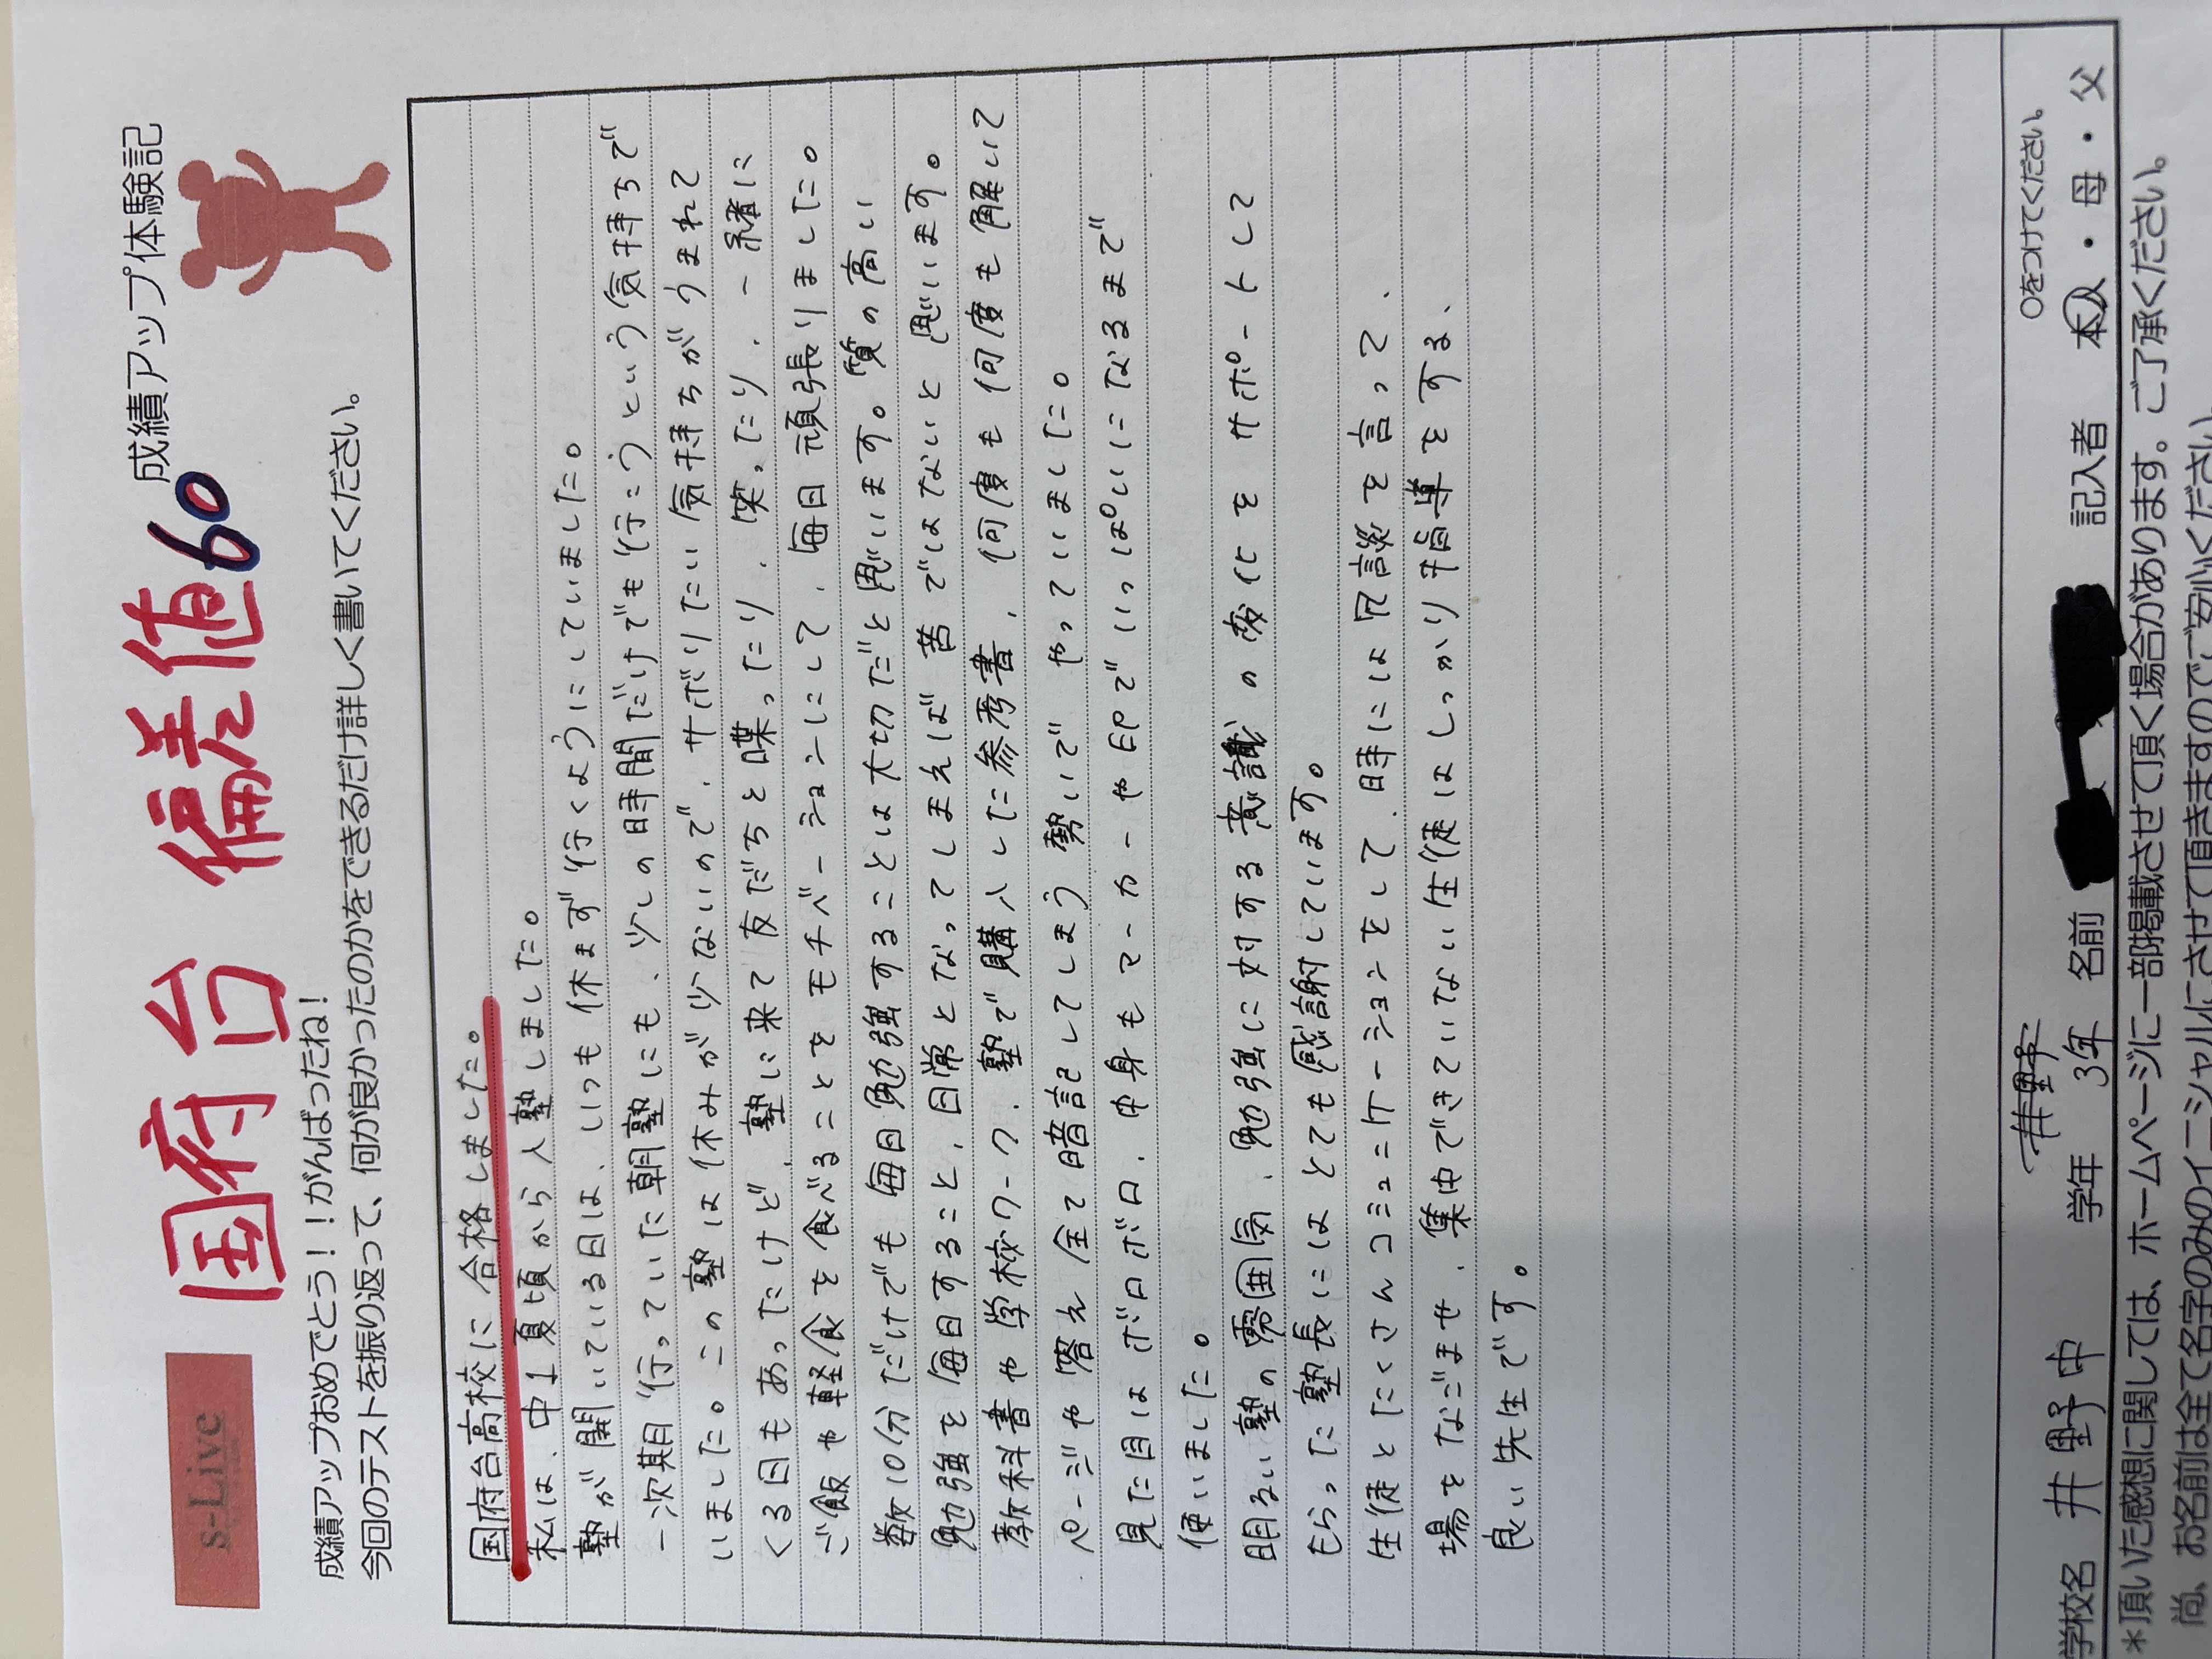 国府台 偏差値60
s-Live
成績アップ体験記
成績アップおめでとう！！がんばったね！
今回のテストを振り返って、何が良かったのかをできるだけ詳しく書いてください。
国府台高校に合格しました。
私は、中1夏頃から入塾しました。
塾が開いている日は、いつも休まず行くようにしていました。
一次期目行っていた朝塾にも、少しの時間だけでも行こうという気持ちで
いました。この塾は休みが少ないので、サボりたい気持ちがうまれて
くる日もあったけど、塾に来て友だちと喋ったり、笑ったり、一緒に
ご飯や軽食を食べることをモチベーションにして、毎日頑張りました。
数10分だけでも毎日勉強することは大切だと思います。質の高い
勉強を毎日すること、日常となってしまえば苦ではないと思います。
教科書や学校ワーク、塾で購入した参考書、何度も何度も解いて
ページや答え全て暗記してしまう勢いでやっていました。
見た目はボロボロ、中身もマーカーや印でいっぱいになるまで
使いました。
明るい塾の雰囲気、勉強に対する意識の変化をサポートして
もらった塾長にはとても感謝しています。
生徒とたくさんコミュニケーションをして、時には冗談を言って、
場をなごませ、集中できていない生徒はしっかり指導をする、
良い先生です。
〇をつけてください。
学校名 井野中 学年 3年 名前 記入者 本人・母・父
＊頂いた感想に関しては、ホームページに一部掲載させて頂く場合があります。ご了承ください。
尚、お名前は全て名字のみのイニシャルにさせて頂きますのでご安心ください